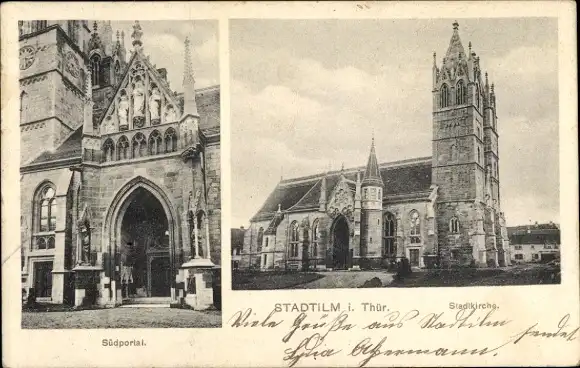 Südportal.
STADTILM i. Thür.
Stadtkirche.
Viele Grüße aus Stadtilm sendet
Lydia